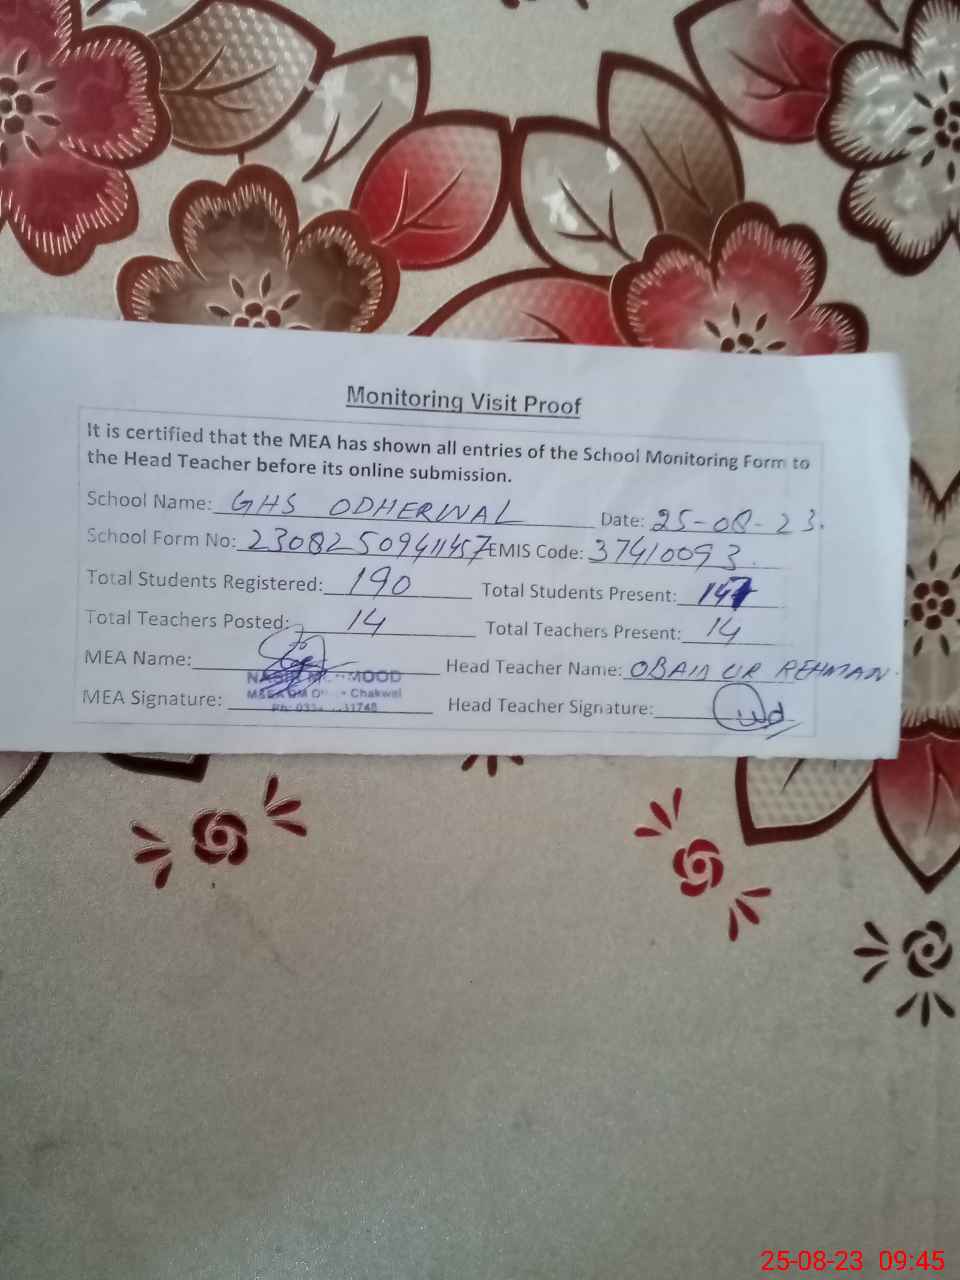 Monitoring Visit Proof
It is certified that the MEA has shown all entries of the School Monitoring Form to
the Head Teacher before its online submission.
School Name: GHS ODHERWAL Date: 25-08-23.
School Form No: EMIS Code: 37410093
Total Students Registered: 190 Total Students Present:
Total Teachers Posted: 14 Total Teachers Present: 14
MEA Name: Head Teacher Name: OBAID UR REHMAN
MEA Signature: Chakwal Head Teacher Signature:
25-08-23 09:45